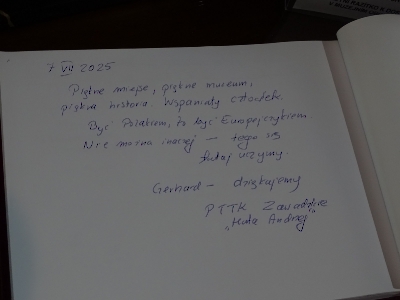 7 VII 2025
Piękne miejsce, piękne muzeum,
piękna historia. Wspaniały człowiek.
Być Polakiem, to być Europejczykiem.
Nie można inaczej — tego się
tutaj uczymy.
Gerhard — dziękujemy
PTTK Zawadzkie
„Huta Andrzej"